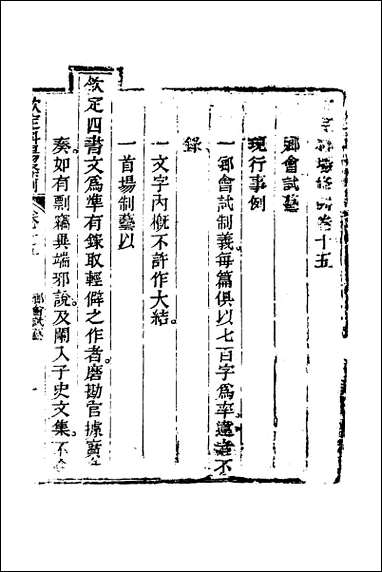 場條例卷十五
鄉會試藝
現行事例
一鄉會試制義每篇俱以七百字爲率違者不
錄
一文字內概不許作大結。
一首場制藝以
欽定四書文爲準有錄取輕僻之作者磨勘官據實
奏如有剽竊異端邪說及闌入子史文集。不
欽定科場條例 卷十五 鄉會試藝 一